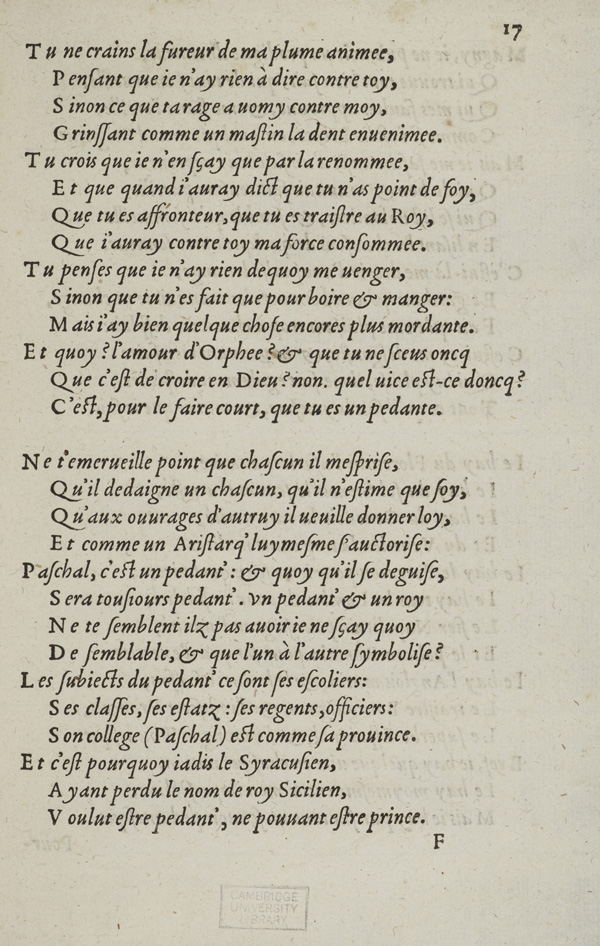 17
Tu ne crains la fureur de ma plume animee,
Pensant que ie n'ay rien à dire contre toy,
Sinon ce que ta rage a uomy contre moy,
Grinssant comme un mastin la dent enuenimee.
Tu crois que ie n'en sçay que par la renommee,
Et que quand i'auray dict que tu n'as point de foy,
Que tu es affronteur, que tu es traistre au Roy,
Que i'auray contre toy ma force consommee.
Tu penses que ie n'ay rien de quoy me uenger,
Sinon que tu n'es fait que pour boire & manger:
Mais i'ay bien quelque chose encores plus mordante.
Et quoy? l'amour d'Orphee? & que tu ne sceus oncq
Que c'est de croire en Dieu? non. quel uice est-ce doncq?
C'est, pour le faire court, que tu es un pedante.
Ne t'emerueille point que chascun il mesprise,
Qu'il dedaigne un chascun, qu'il n'estime que soy,
Qu'aux ouurages d'autruy il ueuille donner loy,
Et comme un Aristarq' luymesme s'auctorise:
Paschal, c'est un pedant': & quoy qu'il se deguise,
Sera tousiours pedant'. vn pedant' & un roy
Ne te semblent ilz pas auoir ie ne sçay quoy
De semblable, & que l'un à l'autre symbolise?
Les subiects du pedant' ce sont ses escoliers:
Ses classes, ses estatz: ses regents, officiers:
Son college (Paschal) est comme sa prouince.
Et c'est pourquoy iadis le Syracusien,
Ayant perdu le nom de roy Sicilien,
Voulut estre pedant', ne pouuant estre prince.
F
CAMBRIDGE
UNIVERSITY
LIBRARY